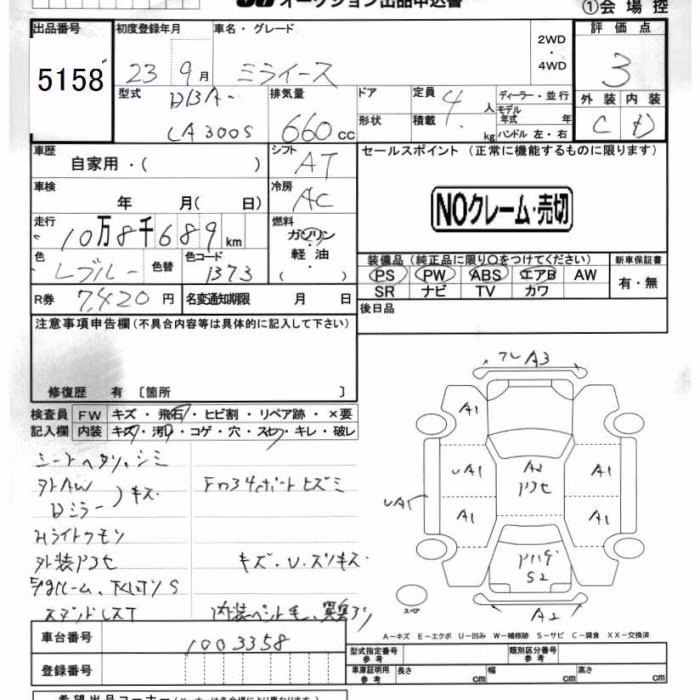 オークション出品申込書 ①会場控
出品番号 初度登録年月 車名・グレード 2WD・4WD 評価点
5158 23 9月 ミライース 3
型式 DBA- LA300S 排気量 660cc ドア 形状 定員 4人 積載 kg ディーラー・並行 モデル年式 年 ハンドル 左・右 外装 内装 C D
車歴 自家用・( ) シフト AT セールスポイント (正常に機能するものに限ります)
車検 年 月( 日) 冷房 AC NOクレーム・売切
走行 10万8千689km 燃料 ガソリン・軽油・( )
色 Lブルー 色替 色コード B73 装備品 (純正品に限り○をつけてください) 新車保証書
PS PW ABS エアB AW 有・無
SR ナビ TV カワ
R券 7,420円 名変通知期限 月 日 後日品
注意事項申告欄 (不具合内容等は具体的に記入して下さい)
修復歴 有 〔箇所 〕
検査員 FW キズ・飛石・ヒビ割・リペア跡・×要
記入欄 内装 キズ・汚れ・コゲ・穴・スレ・キレ・破レ
シートヘタリ、シミ
外AW キズ
Dミラー
Hライトクモリ
外装 キズ・U・スリキズ
A3
A1
UA1 A2 A1
UA1
A1 A1
S2
A2
スペア
A-キズ E-エクボ U-凹み W-補修跡 S-サビ C-腐食 XX-交換済
車台番号 1003358
登録番号
型式指定番号 参考 類別区分番号 参考
車庫証明用 参考 長さ cm 幅 cm 高さ cm
希望出品コーナー